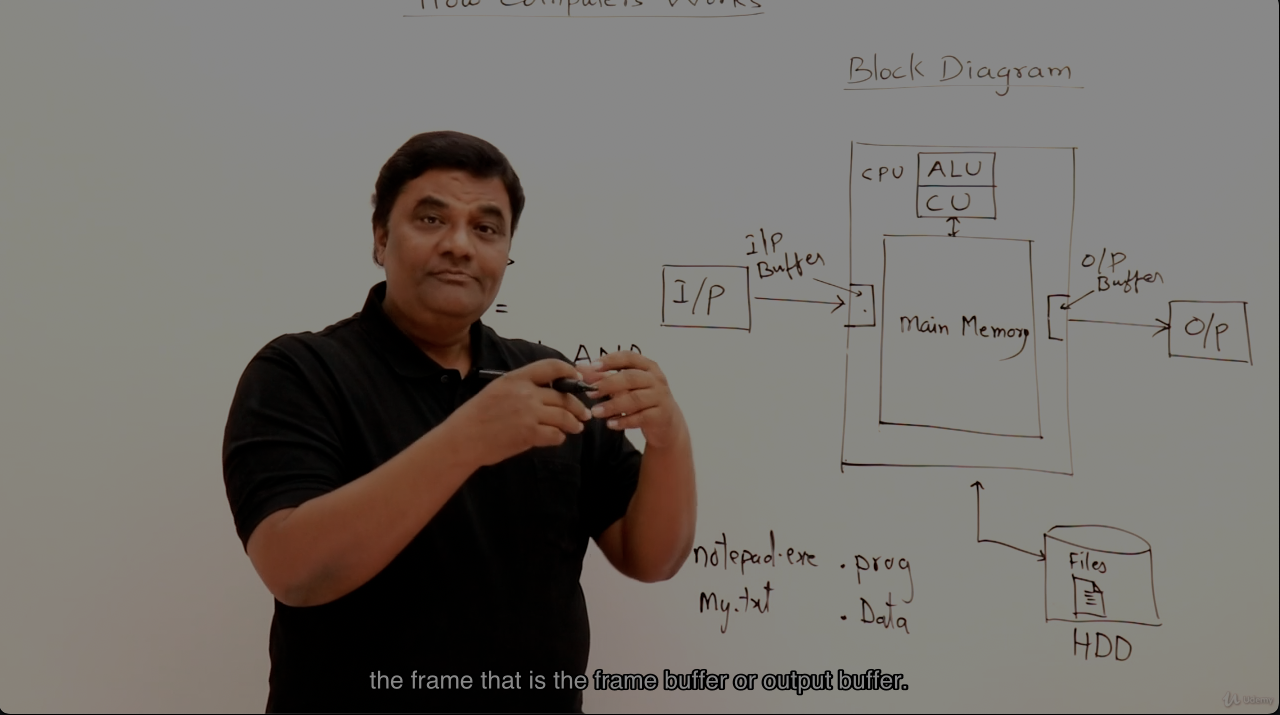 How Computers Works
Block Diagram
CPU
ALU
CU
I/P
Buffer
I/P
Main Memory
O/P
Buffer
O/P
=
AND
notepad.exe . prog
My.txt . Data
Files
HDD
the frame that is the frame buffer or output buffer.
Udemy